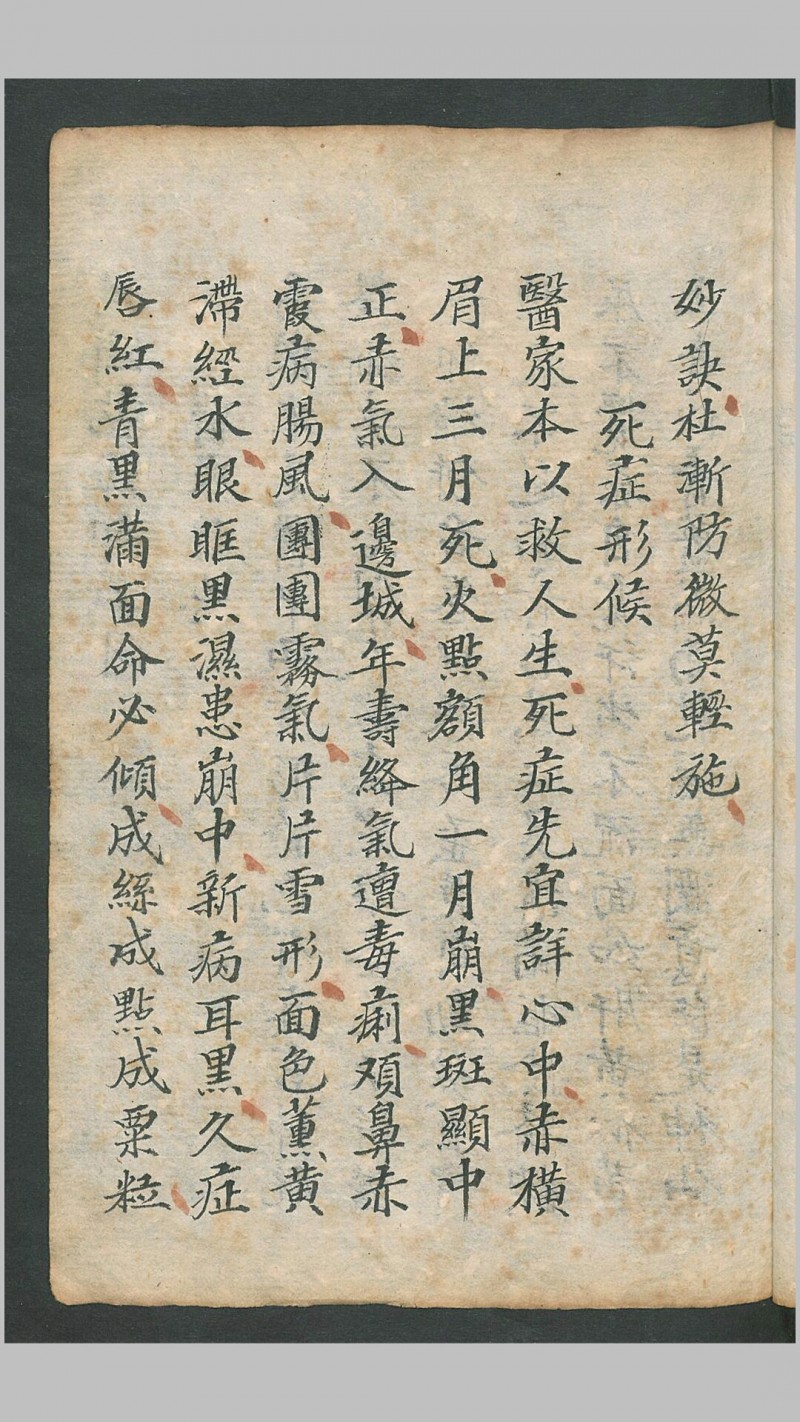 妙訣杜漸防微莫輕施
死症形候
醫家本以救人生死症先宜詳心中赤橫
眉上三月死火點額角一月崩黑斑顯中
正赤氣入邊城年壽絳氣遭毒痢頰鼻赤
霞病腸風團團霧氣片片雪形面色薰黄
滯經水眼眶黑濕患崩中新病耳黑久症
唇紅青黑滿面命必傾成絲成點成粟粒